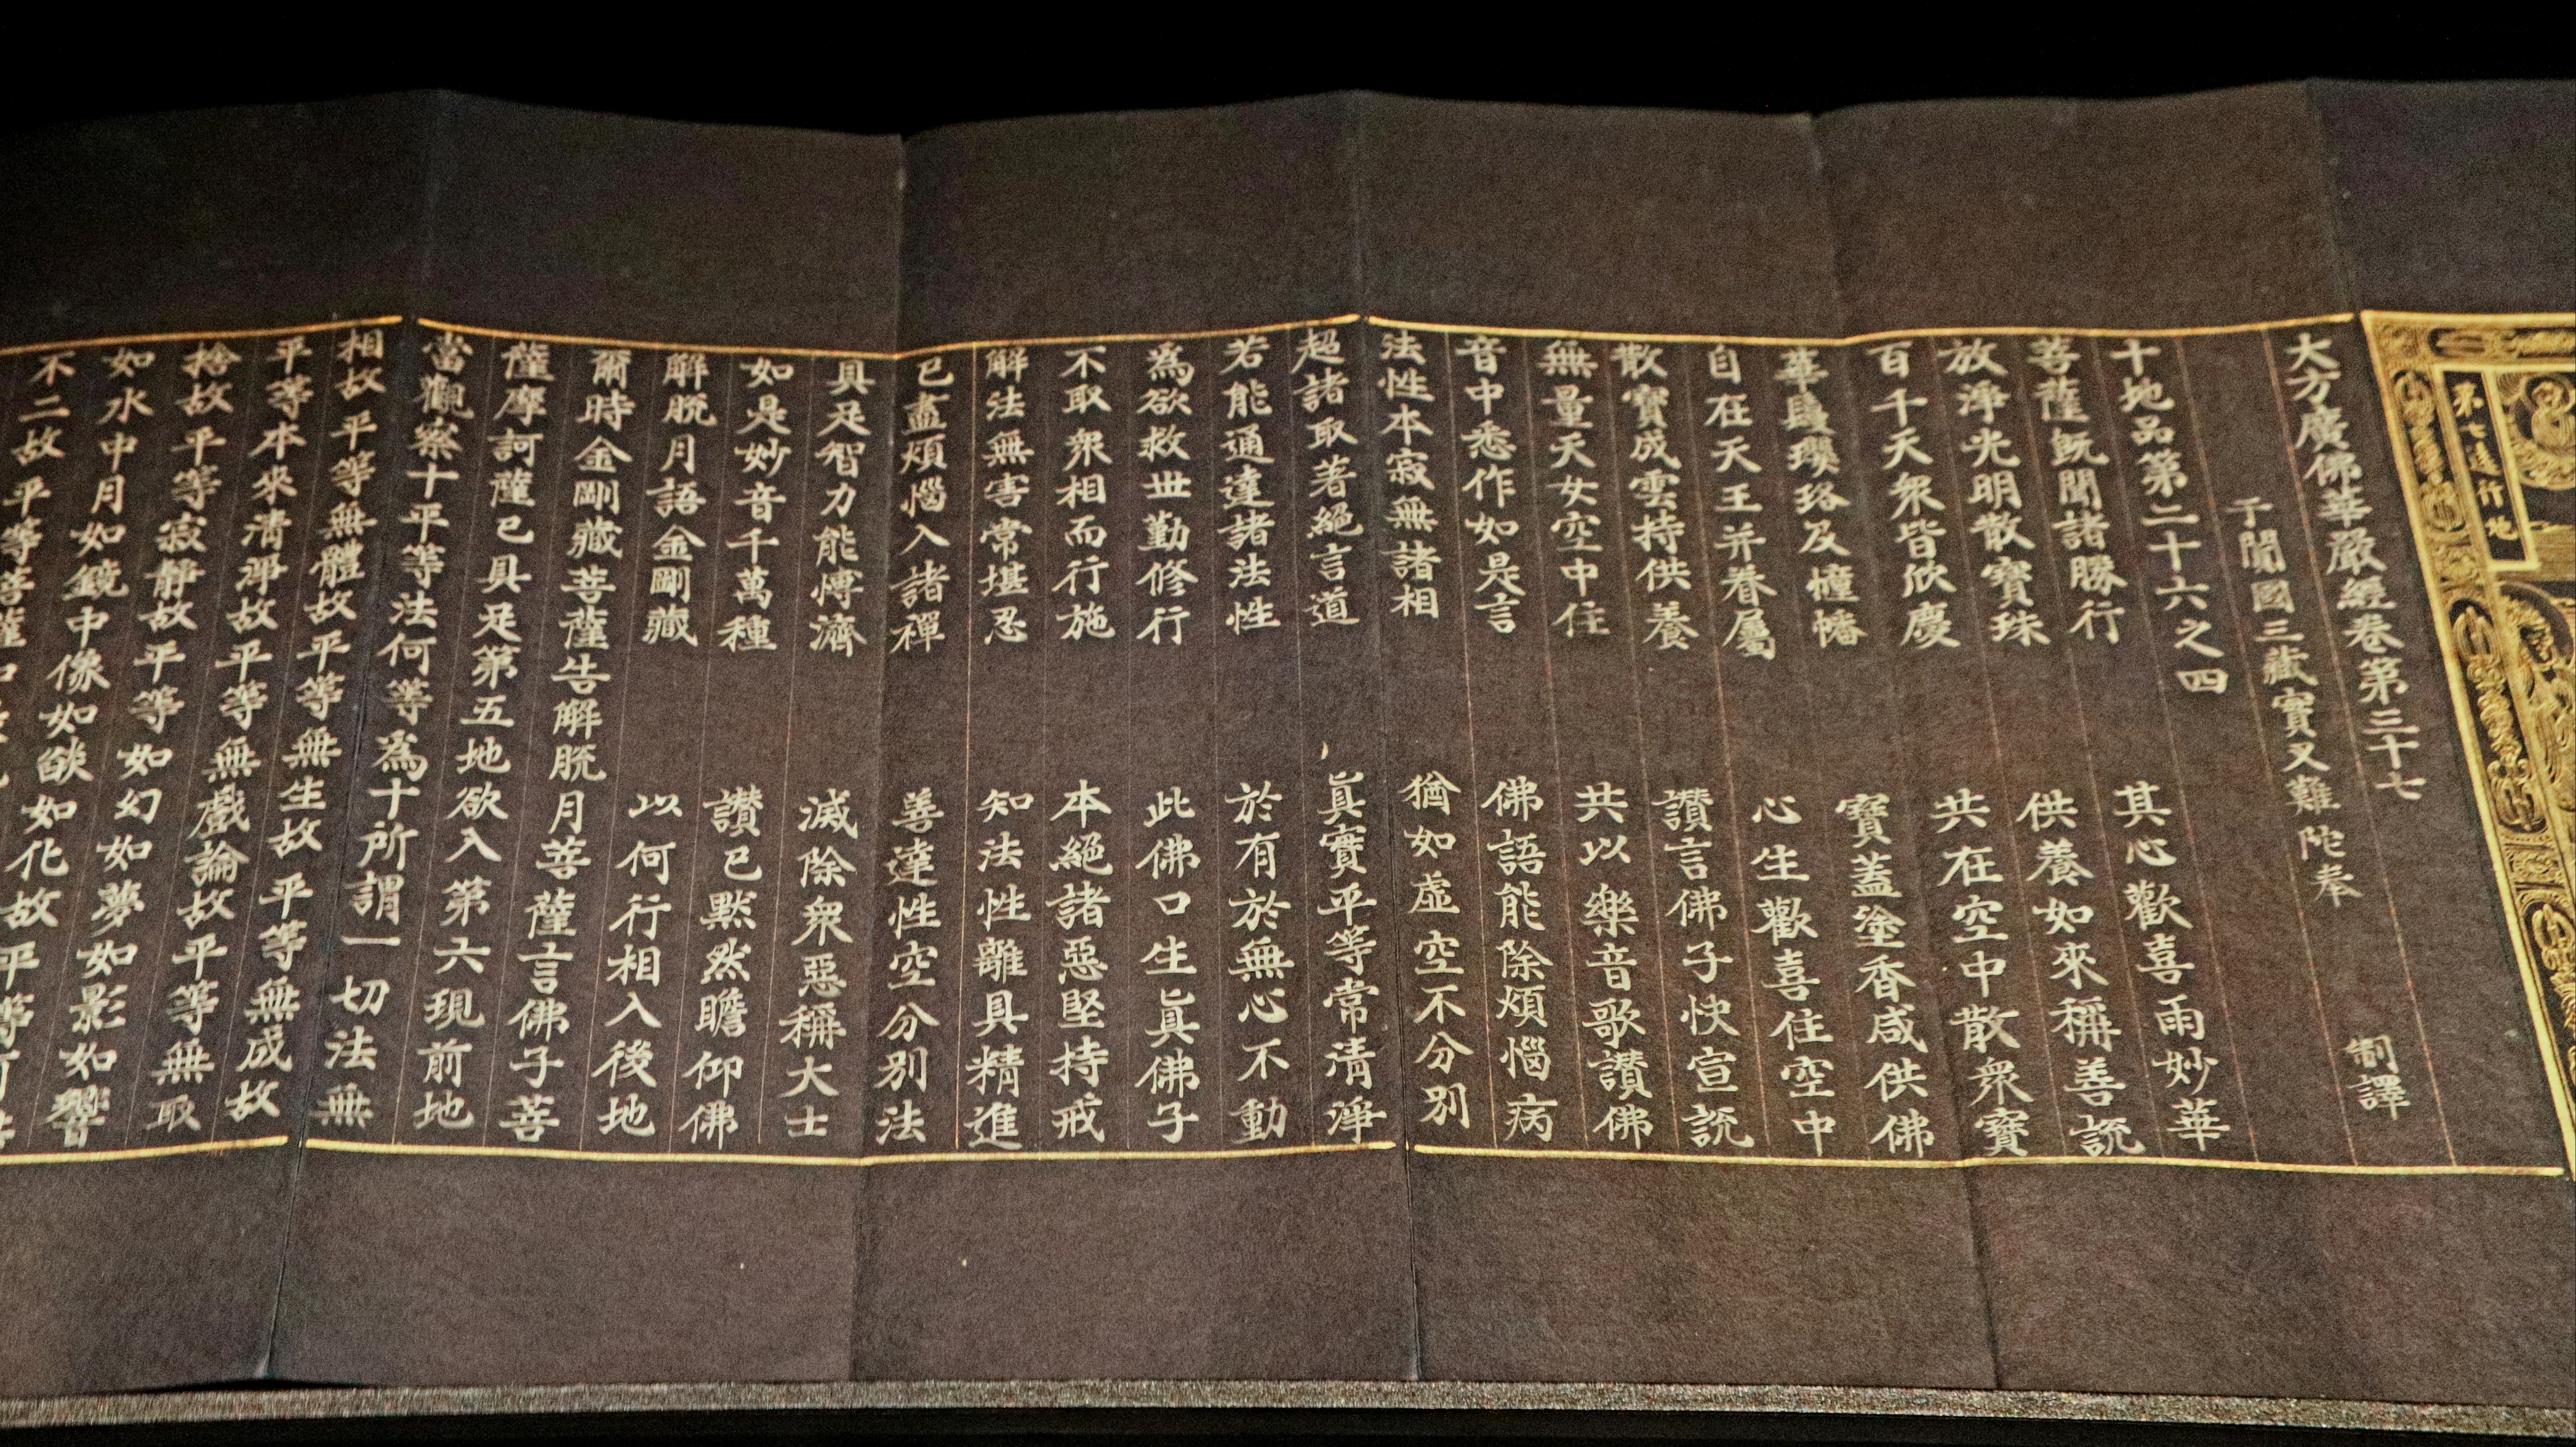 苐七遠行地
大方廣佛華嚴經卷第三十七
于闐國三藏實叉難陁奉 制譯
十地品第二十六之四
菩薩旣聞諸勝行 其心歡喜雨妙華
放淨光明散寶珠 供養如來稱善說
百千天衆皆欣慶 共在空中散衆寶
華鬘瓔珞及幢幡 寶蓋塗香咸供佛
自在天王并眷屬 心生歡喜住空中
散寶成雲持供養 讚言佛子快宣說
無量天女空中住 共以樂音歌讚佛
音中悉作如是言 佛語能除煩惱病
法性本寂無諸相 猶如虛空不分別
超諸取著絕言道 眞實平等常清淨
若能通達諸法性 於有於無心不動
爲欲救世勤修行 此佛口生眞佛子
不取衆相而行施 本絕諸惡堅持戒
解法無害常堪忍 知法性離具精進
已盡煩惱入諸禪 善達性空分別法
具足智力能愽濟 滅除衆惡稱大士
如是妙音千萬種 讚已默然瞻仰佛
解脫月語金剛藏 以何行相入後地
爾時金剛藏菩薩告解脫月菩薩言佛子菩
薩摩訶薩已具足第五地欲入第六現前地
當觀察十平等法何等爲十所謂一切法無
相故平等無體故平等無生故平等無成故
平等本來清淨故平等無戲論故平等無取
捨故平等寂靜故平等如幻如夢如影如響
如水中月如鏡中像如焰如化故平等
不二故平等菩薩